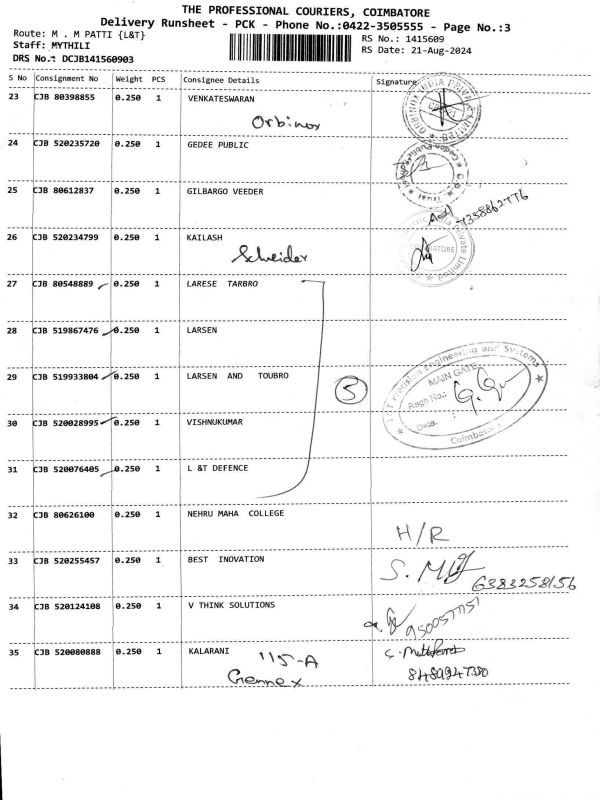 THE PROFESSIONAL COURIERS, COIMBATORE
Delivery Runsheet - PCK - Phone No.:0422-3505555 - Page No.:3
Route: M . M PATTI {L&T}
RS No.: 1415609
Staff: MYTHILI
RS Date: 21-Aug-2024
DRS No.: DCJB141560903
S No Consignment No Weight PCS Consignee Details Signature
23 CJB 80398855 0.250 1 VENKATESWARAN
Orbinox
ORBINOX INDIA PRIVATE LIMITED
24 CJB 520235720 0.250 1 GEDEE PUBLIC
25 CJB 80612837 0.250 1 GILBARGO VEEDER
7358862776
26 CJB 520234799 0.250 1 KAILASH
Schneider
Private Limited
27 CJB 80548889 0.250 1 LARESE TARBRO
28 CJB 519867476 0.250 1 LARSEN
29 CJB 519933804 0.250 1 LARSEN AND TOUBRO
5
L&T Precision Engineering and Systems
MAIN GATE
Regn No.:
Date:
Coimbatore
30 CJB 520028995 0.250 1 VISHNUKUMAR
31 CJB 520076405 0.250 1 L &T DEFENCE
32 CJB 80626100 0.250 1 NEHRU MAHA COLLEGE
H/R
33 CJB 520255457 0.250 1 BEST INOVATION
6383258156
34 CJB 520124108 0.250 1 V THINK SOLUTIONS
35 CJB 520080888 0.250 1 KALARANI
115-A
Gennex
8489247380